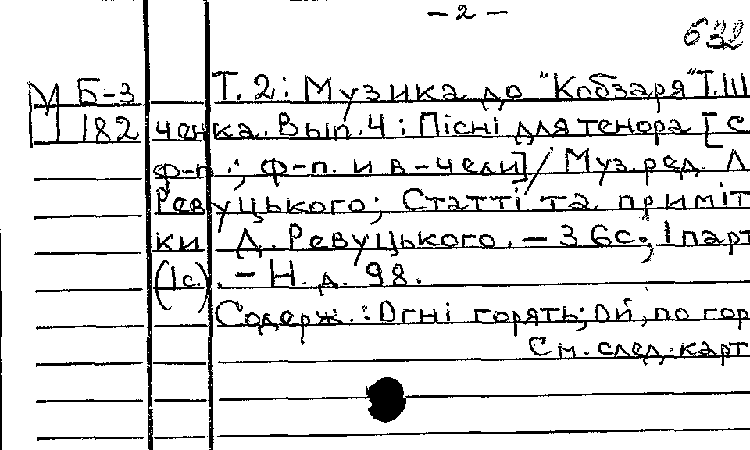 - 2 -
632
М Б-3 Т. 2: Музика до "Кобзаря" Т. Ш
182 ченка. Вып. 4: Пісні для тенора [с
ф-п.; ф-п. и в-чели] / Муз. ред. Л
Ревуцького; Статті та приміт
ки Д. Ревуцького. - 36с.; 1 парт
(1с). - Н. д. 98.
Содерж.: Огні горять; Ой, по гор
См. след. карт